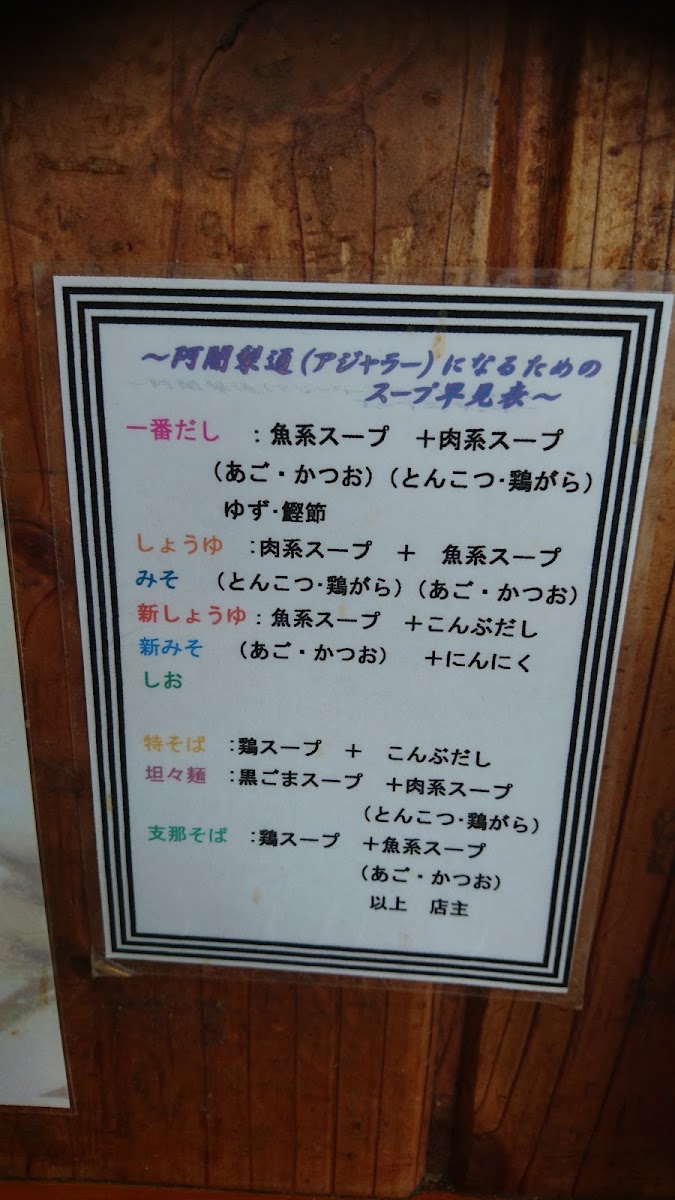 ～阿闍梨通(アジャラー)になるための
スープ早見表～
一番だし ：魚系スープ ＋肉系スープ
(あご・かつお)(とんこつ・鶏がら)
ゆず・鰹節
しょうゆ ：肉系スープ ＋ 魚系スープ
みそ (とんこつ・鶏がら)(あご・かつお)
新しょうゆ：魚系スープ ＋こんぶだし
新みそ (あご・かつお) ＋にんにく
しお
特そば ：鶏スープ ＋ こんぶだし
坦々麺 ：黒ごまスープ ＋肉系スープ
(とんこつ・鶏がら)
支那そば ：鶏スープ ＋魚系スープ
(あご・かつお)
以上 店主